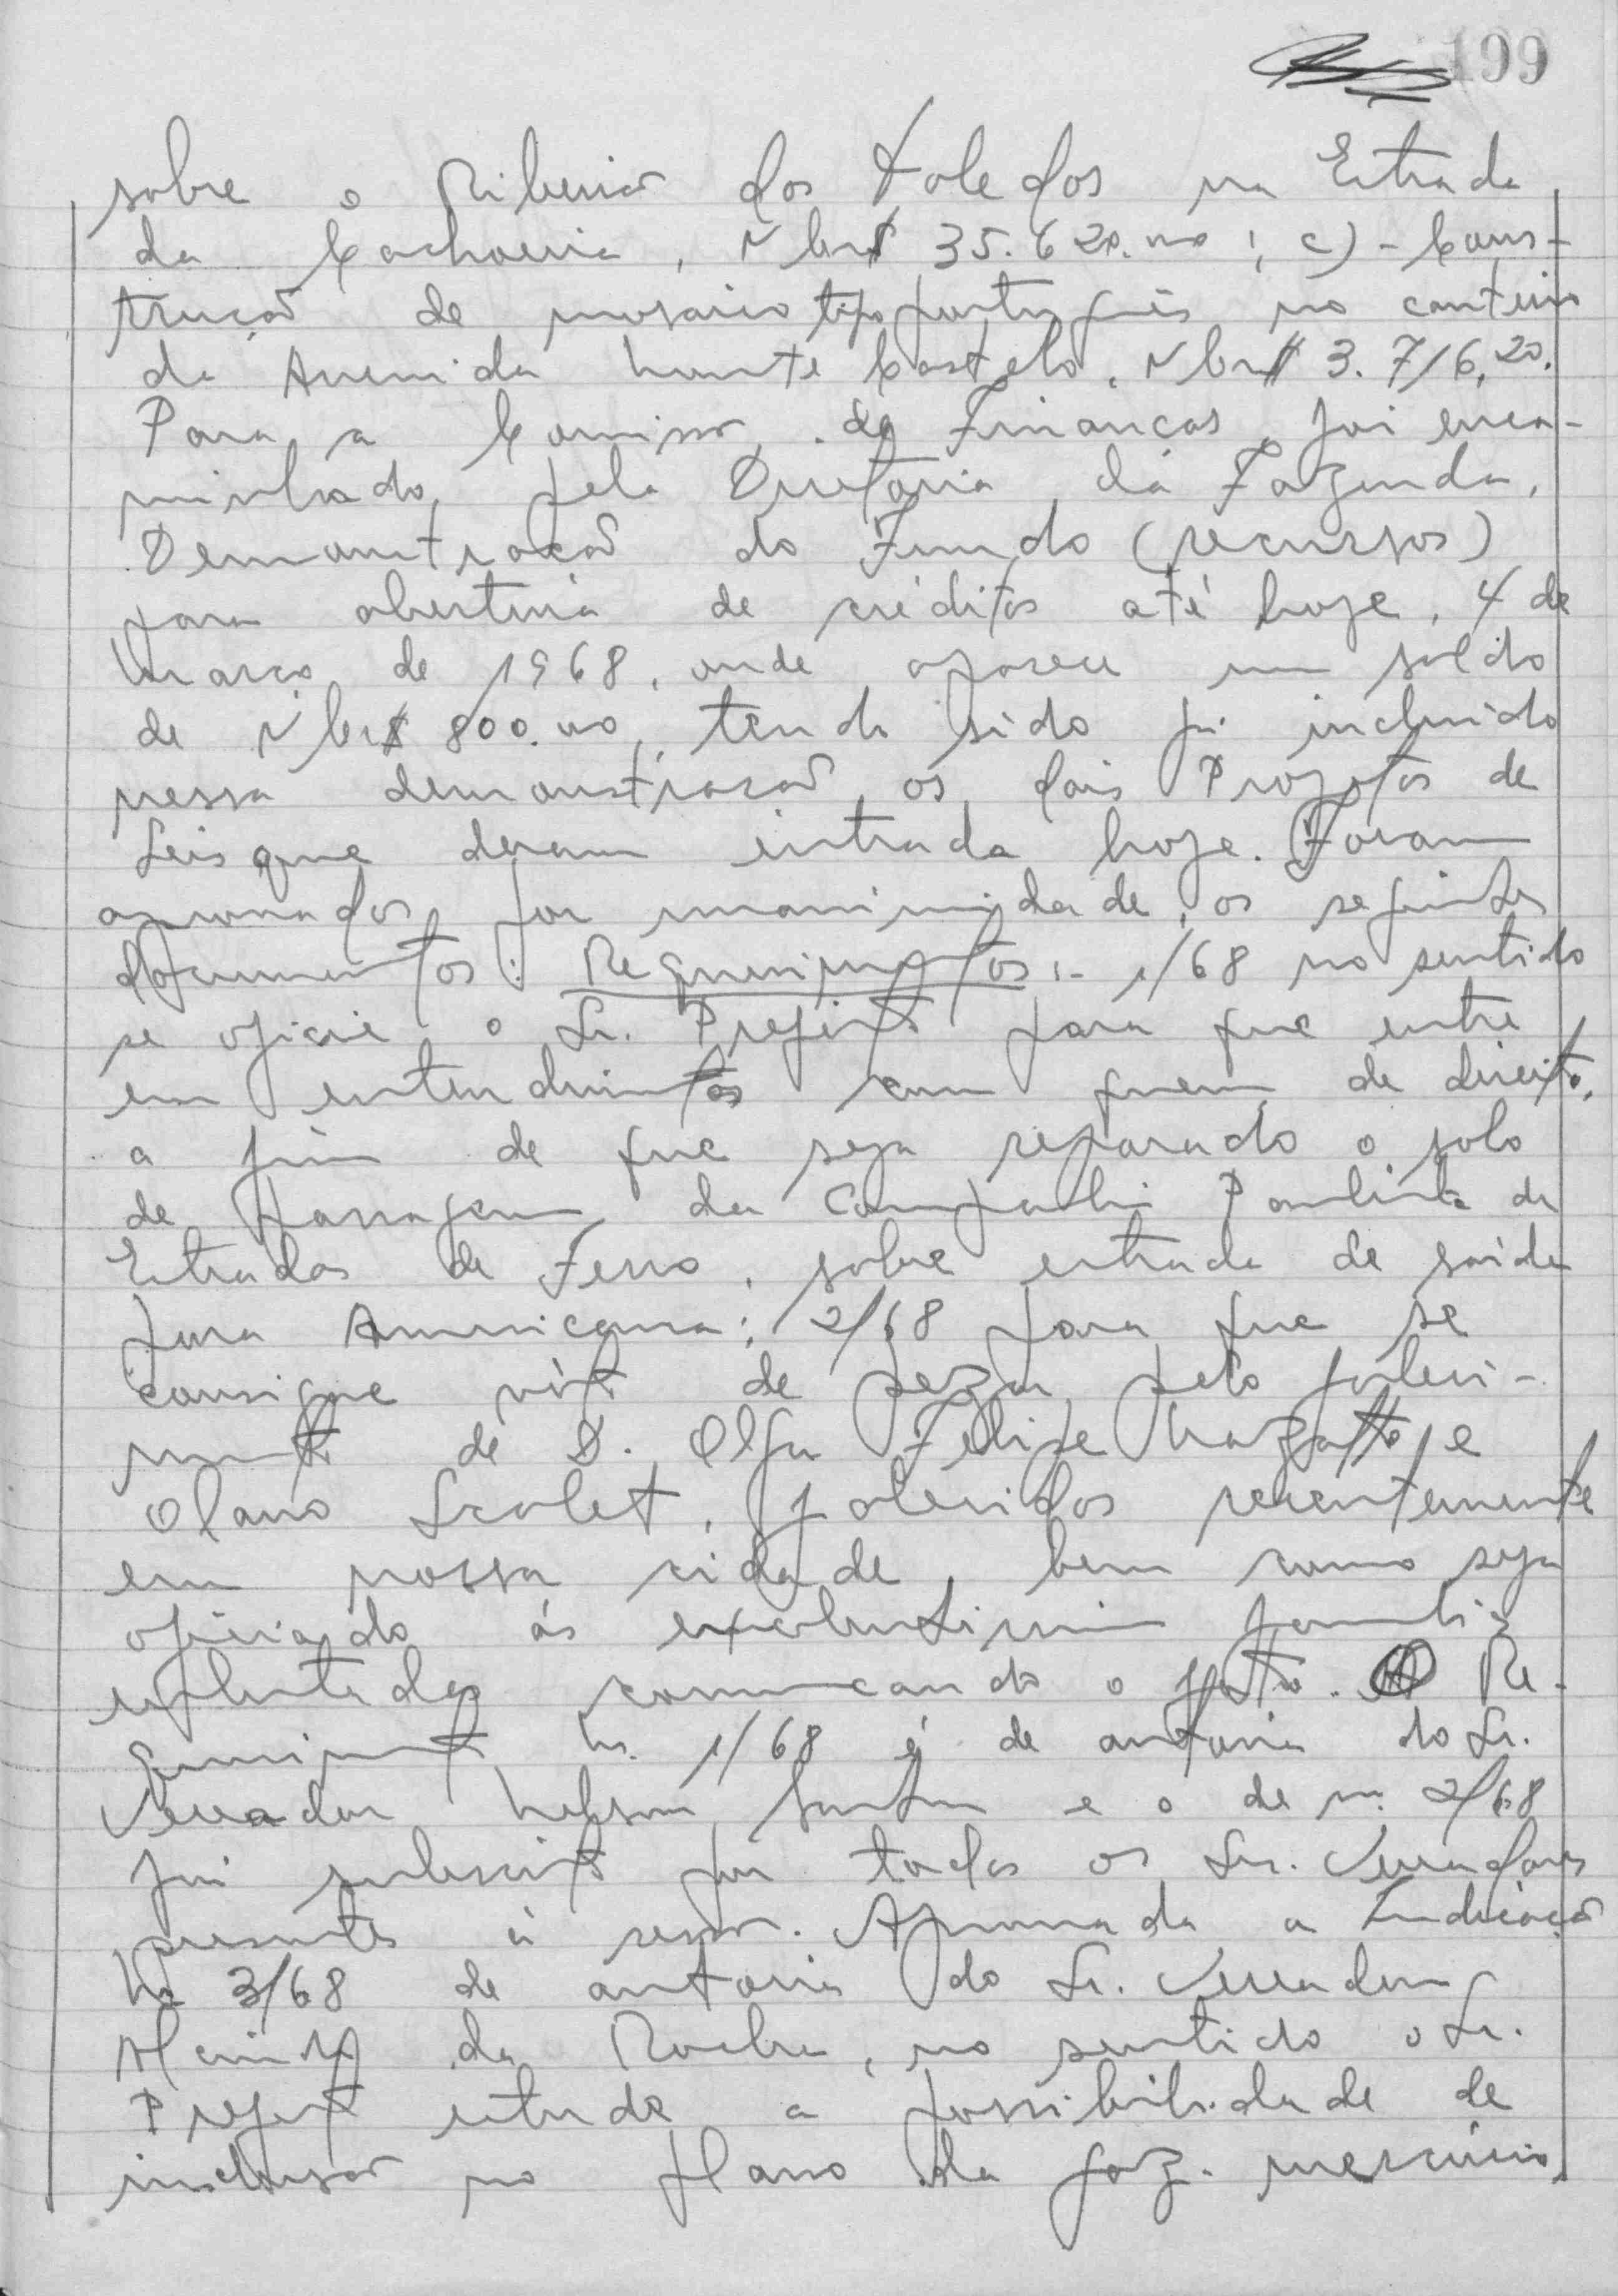 199
sobre o Ribeirão dos Toledos na Estrada
da Cachoeira, NCr$ 35.620,00; c) - Cons-
trução de mosaico tipo português no canteiro
da Avenida Monte Castelo, NCr$ 3.716,20.
Para a Comissão de Finanças foi enca-
minhado, pela Diretoria da Fazenda,
Demonstração do Fundo (recursos)
para abertura de créditos até hoje, 4 de
Março de 1968, onde aparece um saldo
de NCr$ 800,00, tendo sido já incluido
nessa demonstração os dois Projetos de
Leis que deram entrada hoje. Foram
aprovados por unanimidade, os seguintes
documentos: Requerimentos:- 1/68 no sentido
se oficie o Sr. Prefeito para que entre
em entendimentos com quem de direito,
a fim de que seja reparado o solo
de passagem da Companhia Paulista de
Estradas de Ferro, sobre estrada de saída
para Americana; 2/68 para que se
consigne voto de pezar pelo faleci-
mento de D. Olga Felipe e
Olavo, falecidos recentemente
em nossa cidade, bem como seja
oficiado ás excelentissimas familias
enlutadas comunicando o fato. O Re-
querimento n. 1/68 é de autoria do Sr.
Vereador Nelson e o de n. 2/68
foi subscrito por todos os Srs. Vereadores
presentes à sessão. Aprovada a Indicação
Nº 3/68 de autoria do Sr. Vereador
da Rocha, no sentido o Sr.
Prefeito estude a possibilidade de
inclusão no plano da gaz. mercúrio